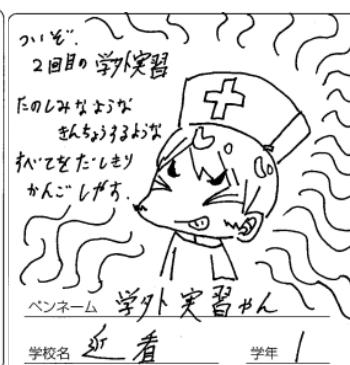 ついぞ.
2回目の学外実習
たのしみなような
きんちょうするような
すべてをだしきり
かんごしがす.
ペンネーム 学外実習やん
学校名 近看
学年 1